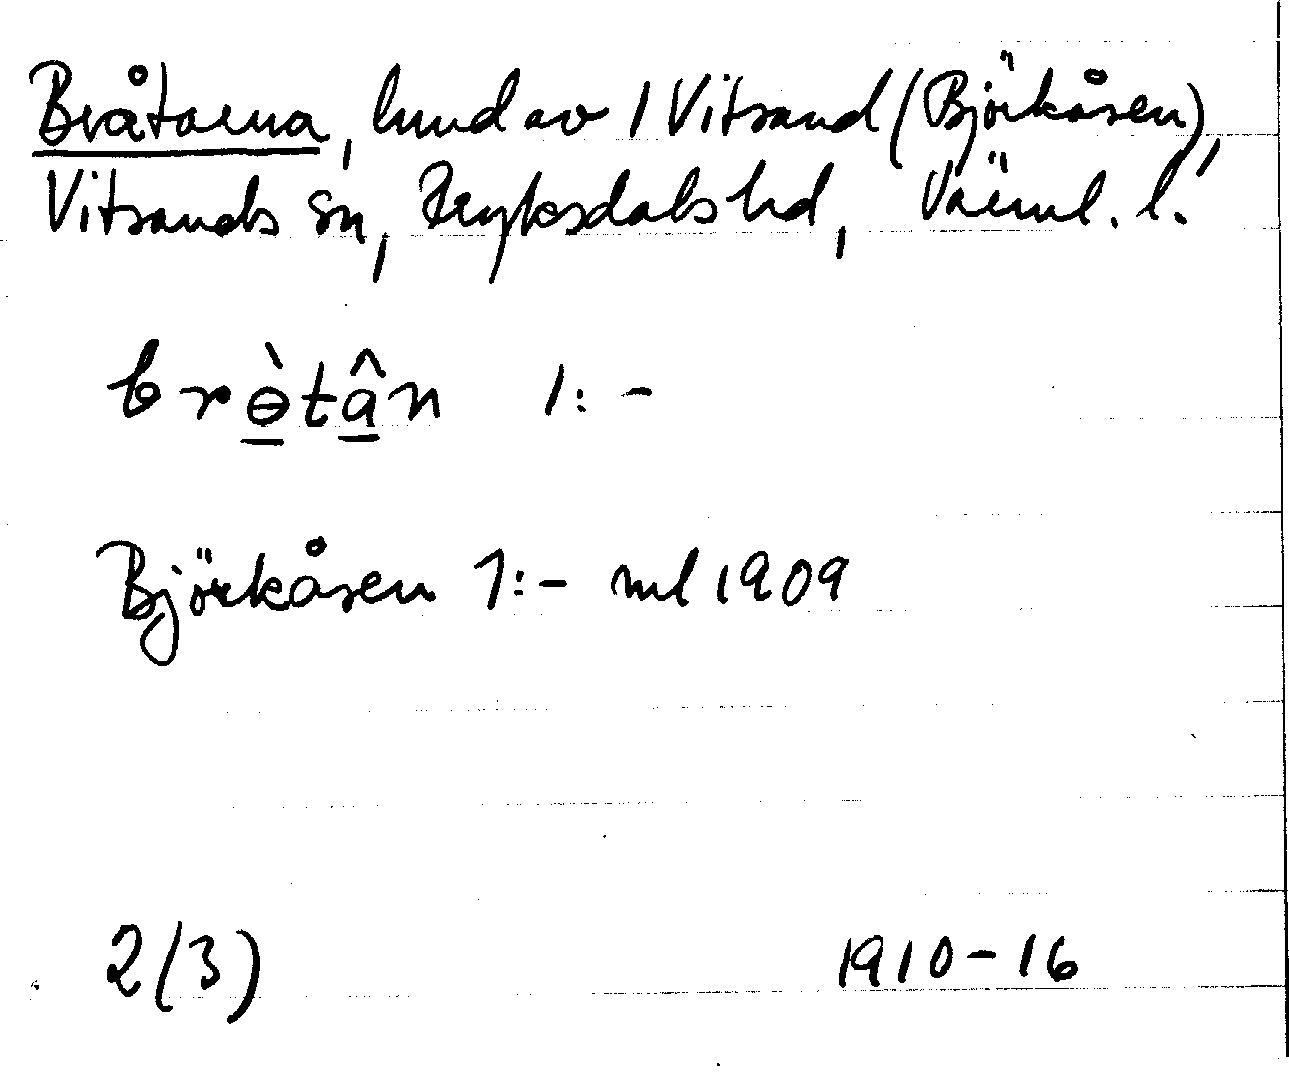 Bråtarna, hmd av 1 Vitsand (Björkåsen),
Vitsands sn, Fryksdals hd, Värml. l.
brɵ̀tân 1: -
Björkåsen 1:- ml 1909
2(3) 1910-16